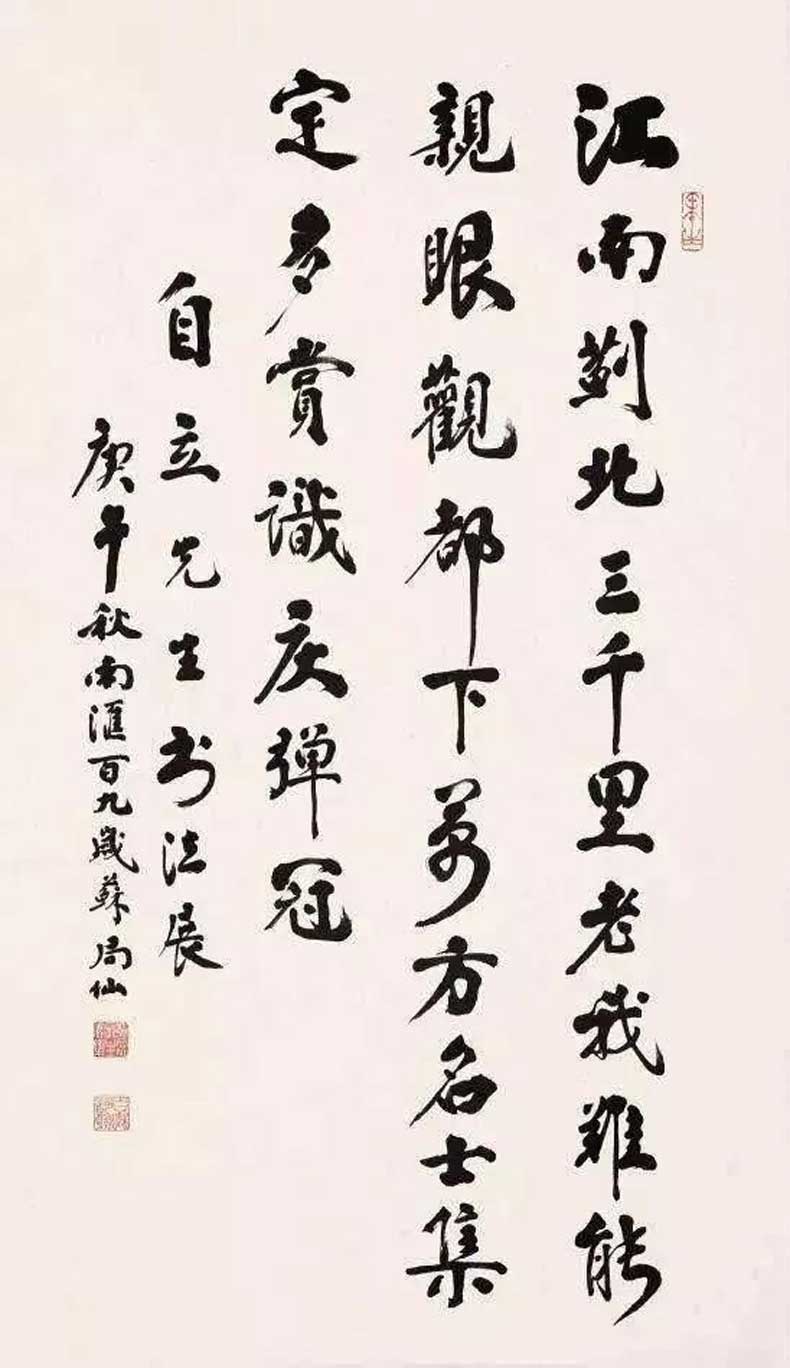 江南薊北三千里老我難能
親眼觀都下万方名士集
定多賞識庆彈冠
自立先生书法展
庚午秋南滙百九歲蘇局仙